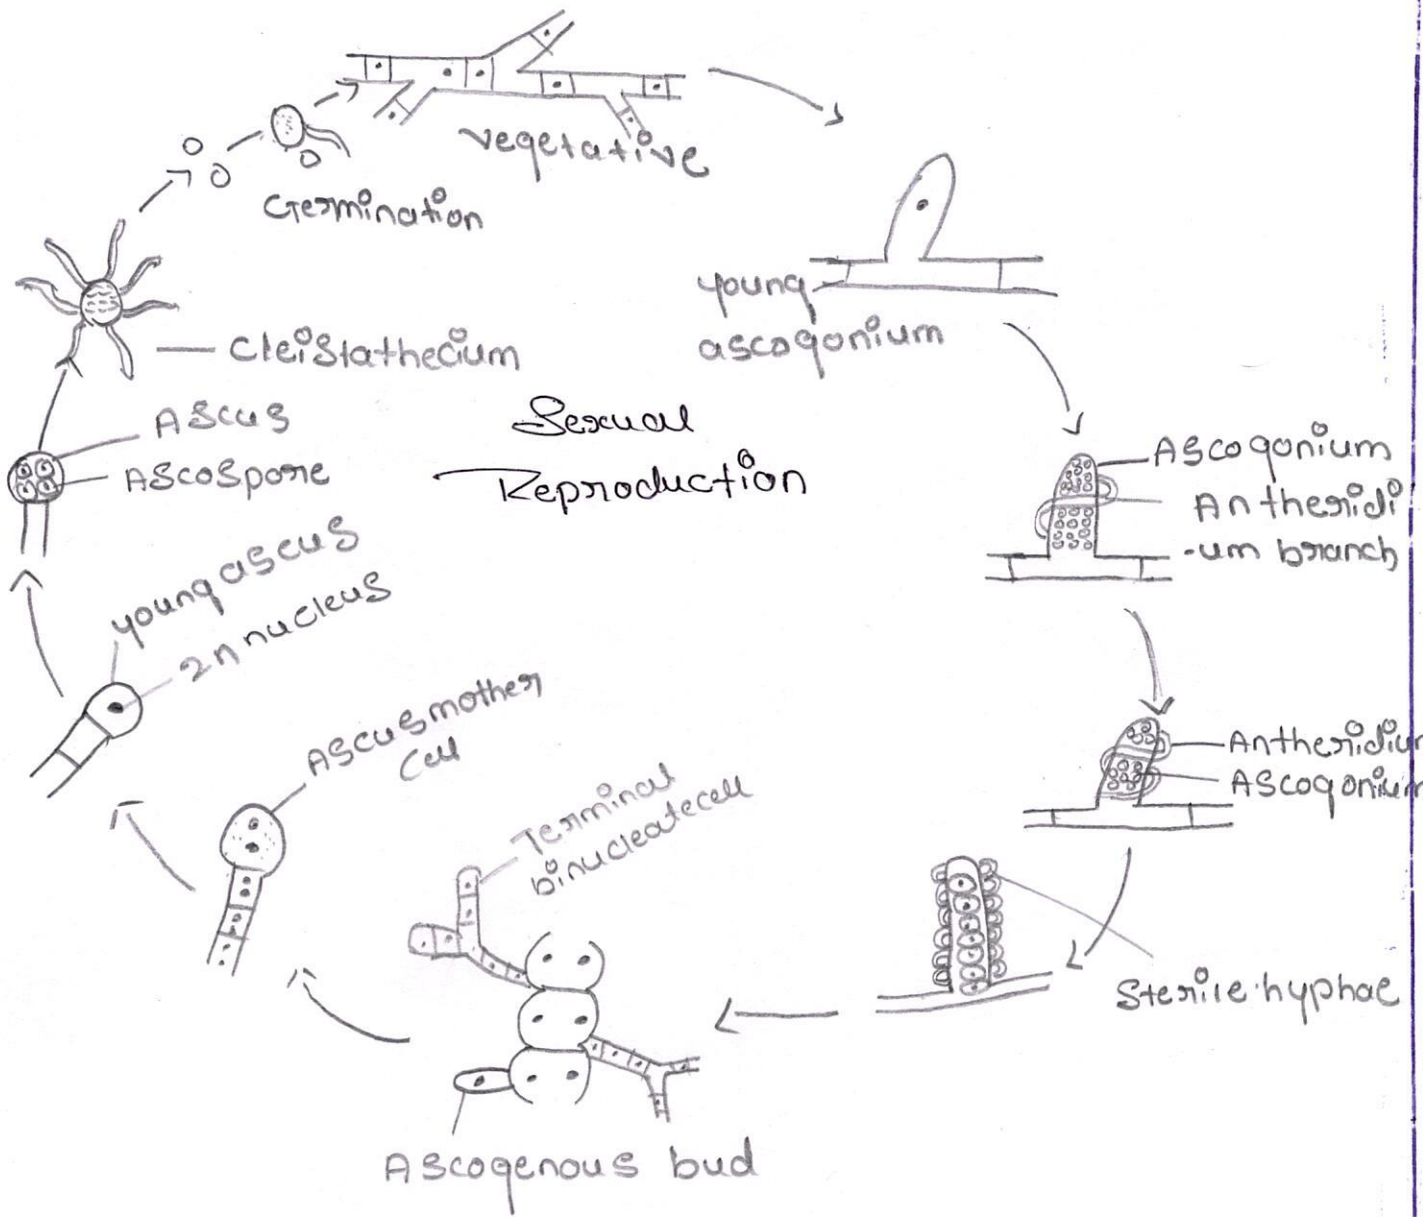 vegetative
Germination
young
ascogonium
Cleistathecium
Ascus
Ascospore
Sexual
Reproduction
Ascogonium
Antheridi
-um branch
young ascus
2n nucleus
Ascus mother
Cell
Terminal
binucleate cell
Antheridium
Ascogonium
Sterile hyphae
Ascogenous bud